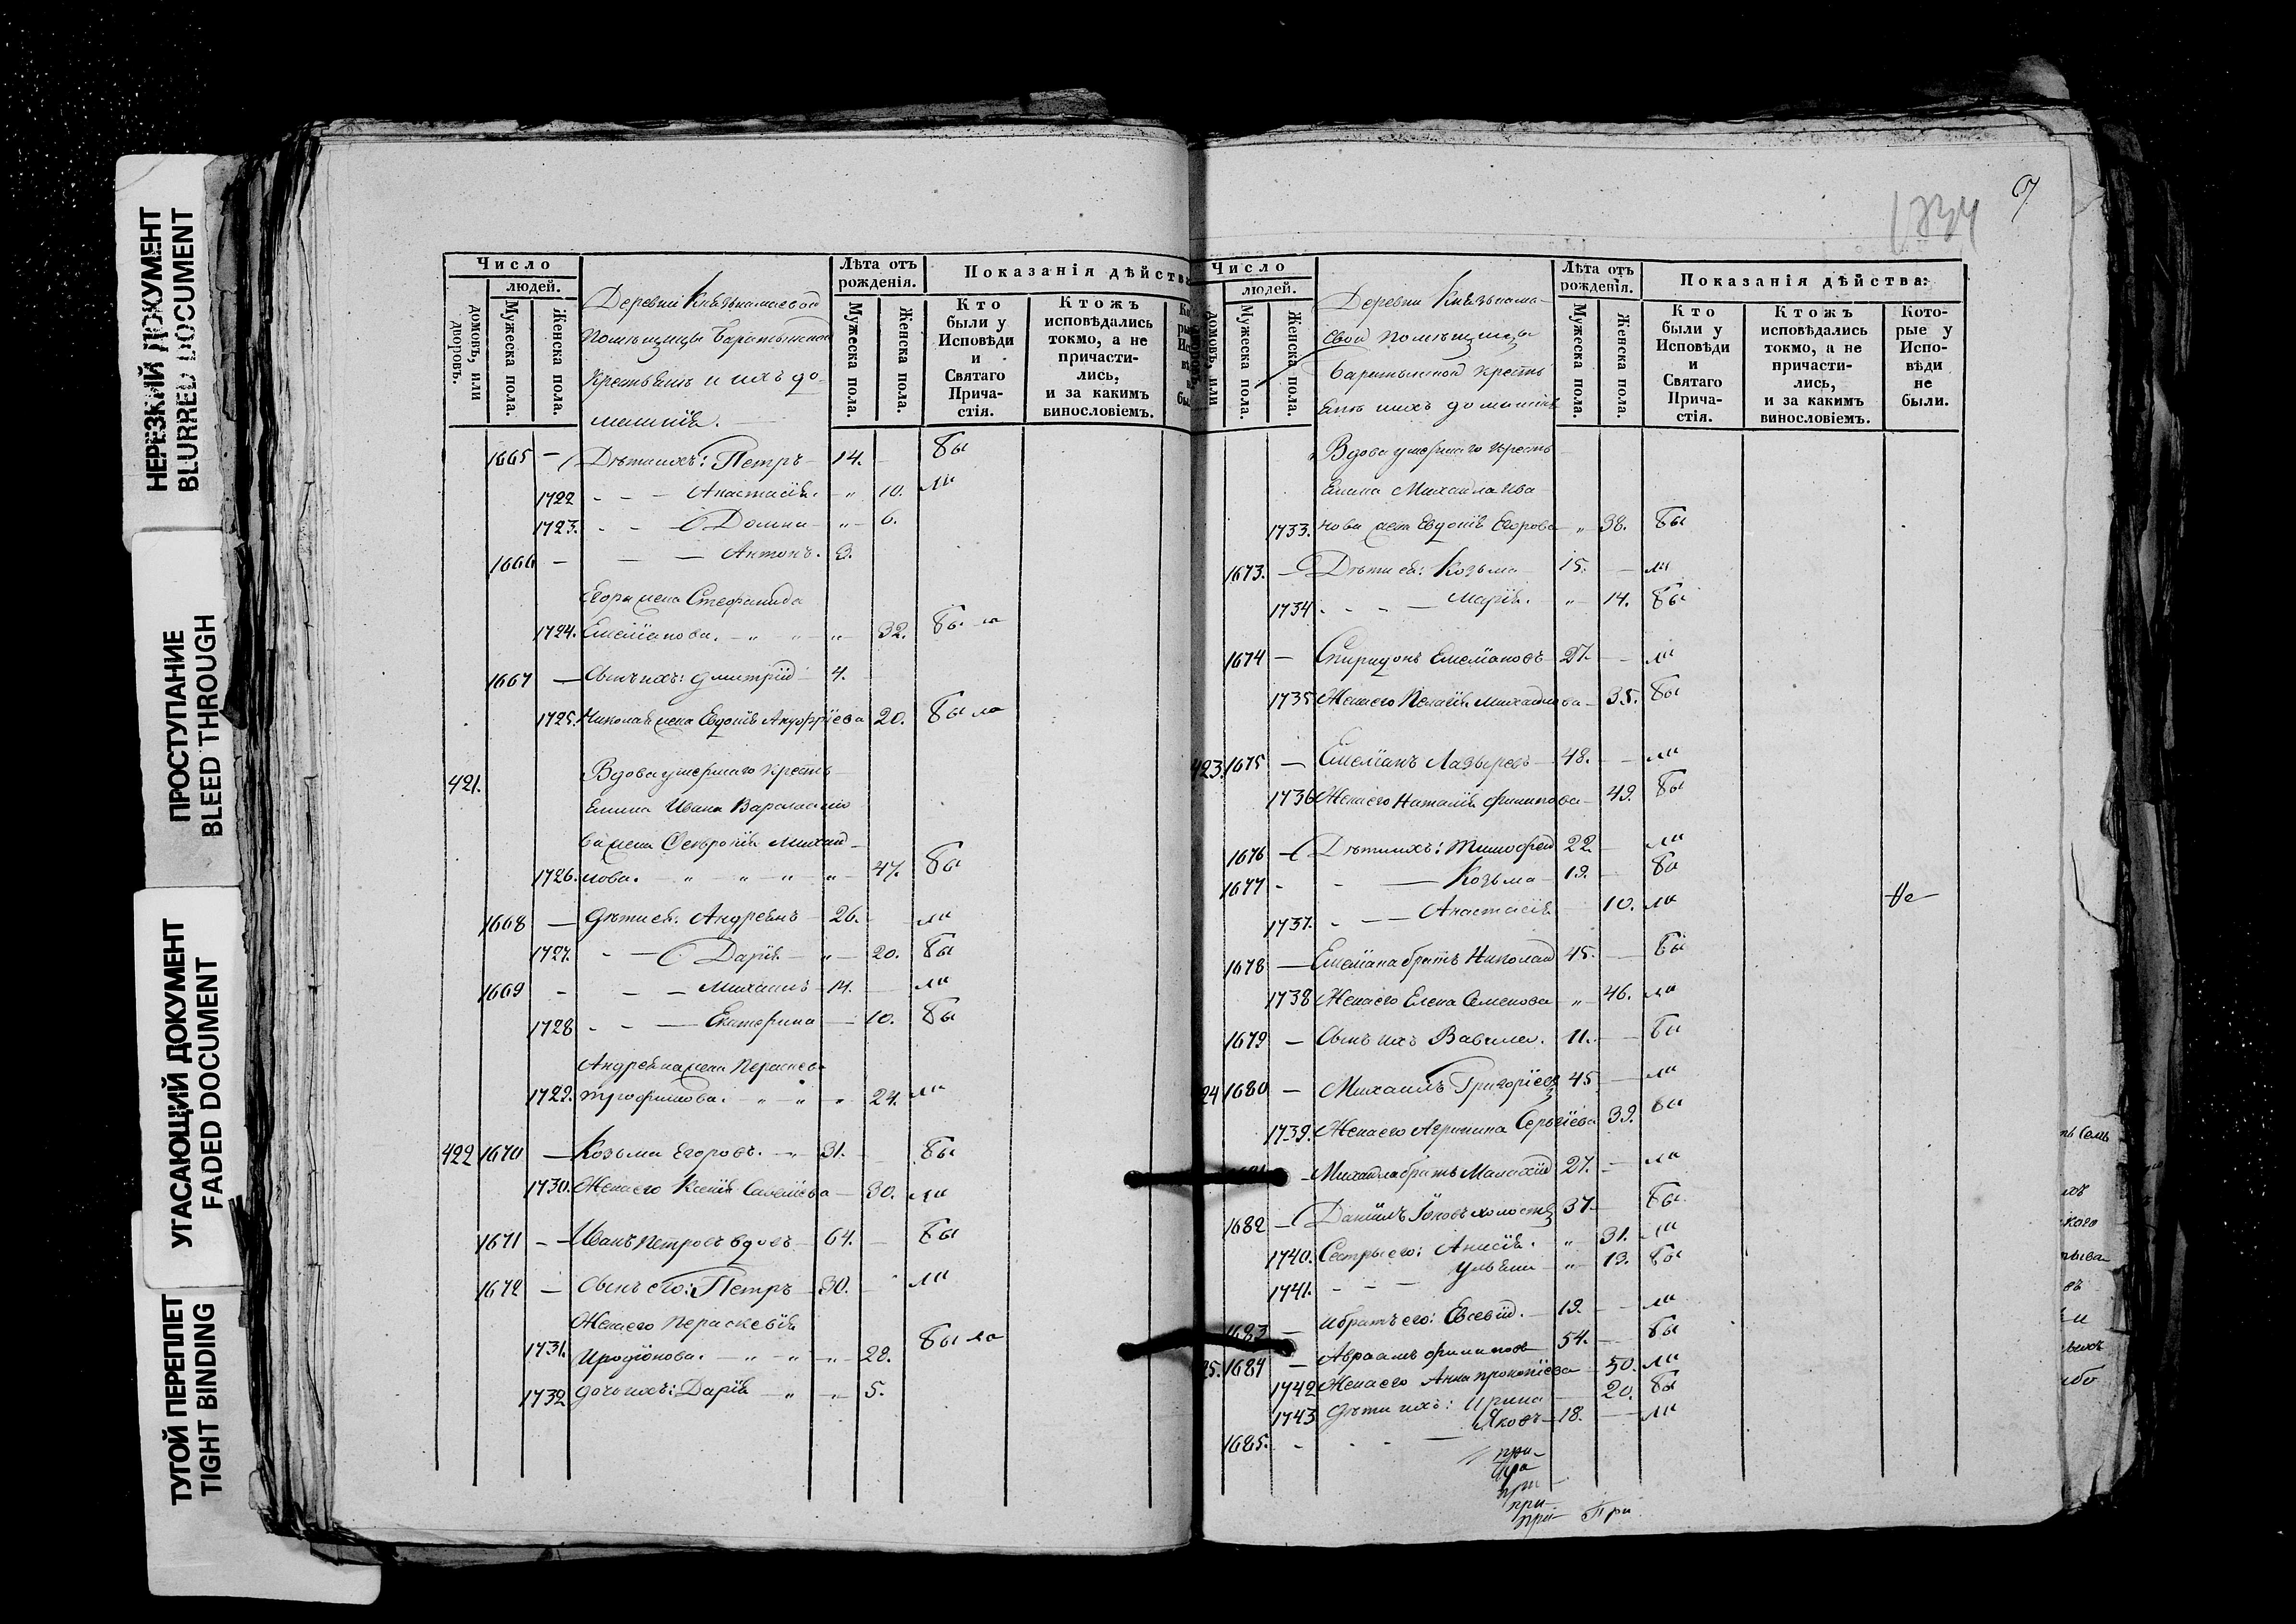 НЕРЕЗКИЙ ДОКУМЕНТ
BLURRED DOCUMENT
ПРОСТУПАНИЕ
BLEED THROUGH
УГАСАЮЩИЙ ДОКУМЕНТ
FADED DOCUMENT
ТУГОЙ ПЕРЕПЛЕТ
TIGHT BINDING
Число
людей.
домовъ, или дворовъ.
Мужеска пола.
Женска пола.
Деревни
Помѣщицы
Крестьянъ и ихъ до-
машнія.
Лѣта отъ рожденія.
Мужеска пола.
Женска пола.
Показанія дѣйств
Кто были у Исповѣди и Святаго Прича-стія.
Ктожъ исповѣдались токмо, а не причасти-лись, и за какимъ винословіемъ.
1665 — Дѣти ихъ: Петръ — 14. — Бы
1722 - - - Анастасія. - „ - 10. ли
1723. - - Домна - „ - 6.
1666 — — — Антонъ. 3.
Егора жена Стефанида
1724. Емеліанова. - „ - „ - „ - 32. Бы ла
1667 — Сынъ ихъ: Дмитрій - 4.
1725. Николая жена Евдокія Ануфріева 20. Бы ла
421. Вдова умершаго кресть-
янина Ивана
ва жена Михай-
1726. лова. - „ - „ - „ - „ - 47. Бы
1668 — Дѣти ея: Андреянъ - 26. - ли
1727. - — Дарія - „ - 20. Бы
1669 - - - Михаилъ - 14. - ли
1728 - - — Екатерина — 10. Бы
Андреяна жена
1729. Трофимова. - „ - „ - „ 24. ли
422 1670 — Козьма Егоровъ. - „ - 31. - Бы
1730. Жена его Ксенія Савеліева - 30. ли
1671 - - Иванъ Петровъ вдовъ - 64. - Бы
1672 — Сынъ его: Петръ - 30. - ли
Жена его Параскевія
1731. Иродіонова. — „ - „ - „ - 28. Бы ла
1732 Дочь ихъ: Дарія - „ - „ - 5.
1834
67
Число
людей.
домовъ, или
Мужеска пола.
Женска пола.
Деревни
Помѣщицы
кресть
янъ и ихъ домашнія
Лѣта отъ рожденія.
Мужеска пола.
Женска пола.
Показанія дѣйства:
Кто были у Исповѣди и Святаго Прича-стія.
Ктожъ исповѣдались токмо, а не причасти-лись, и за какимъ винословіемъ.
Кото-рые у Испо-вѣди не были.
Вдова умершаго кресть
янина Михайла Ива
1733. нова жена Евдокія Егорова - „ - 38. Бы
1673. — Дѣти ея: Козьма - 15. — ли
1734 - - - — Марія. „ - 14. Бы
1674 — Спиридонъ Емеліановъ - 27. — ли
1735 Жена его Пелагія Михайлова - 35. Бы
423. 1675 — Емеліанъ Лазаревъ - 48. — ли
1736 Жена его Наталія Филипова - 49. Бы
1676 — Дѣти ихъ: Тимофей 22. — ли
1677 - - — Козьма - 19. - Бы
1737. - - — Анастасія - 10. ли Не
1678 — Емеліана братъ Николай 45. — Бы
1738 Жена его Елена Семенова - „ - 46. ли
1679 — Сынъ ихъ Вавила. 11. — Бы
24 1680 — Михаилъ Григоріевъ 45 — ли
1739. Жена его Агрипина Сергіева 39. Бы
Михайла братъ Малахій 27. - ли
1682 — Даніилъ Іововъ холостъ 37. Бы
1740. Сестры его: Анисія. „ 31. ли
1741. - - — Ульяна - „ - 13. Бы
1683 — и братъ его: Евсевій. - 19. — ли
25. 1684 — Авраамъ Филиповъ 54. — Бы
1742 Жена его Анна Прокопіева - 50. ли
1743 Дѣти ихъ: Ирина — 20. Бы
1685. - - - — Яковъ - 18. — ли
при-
при-
при-
при-
При